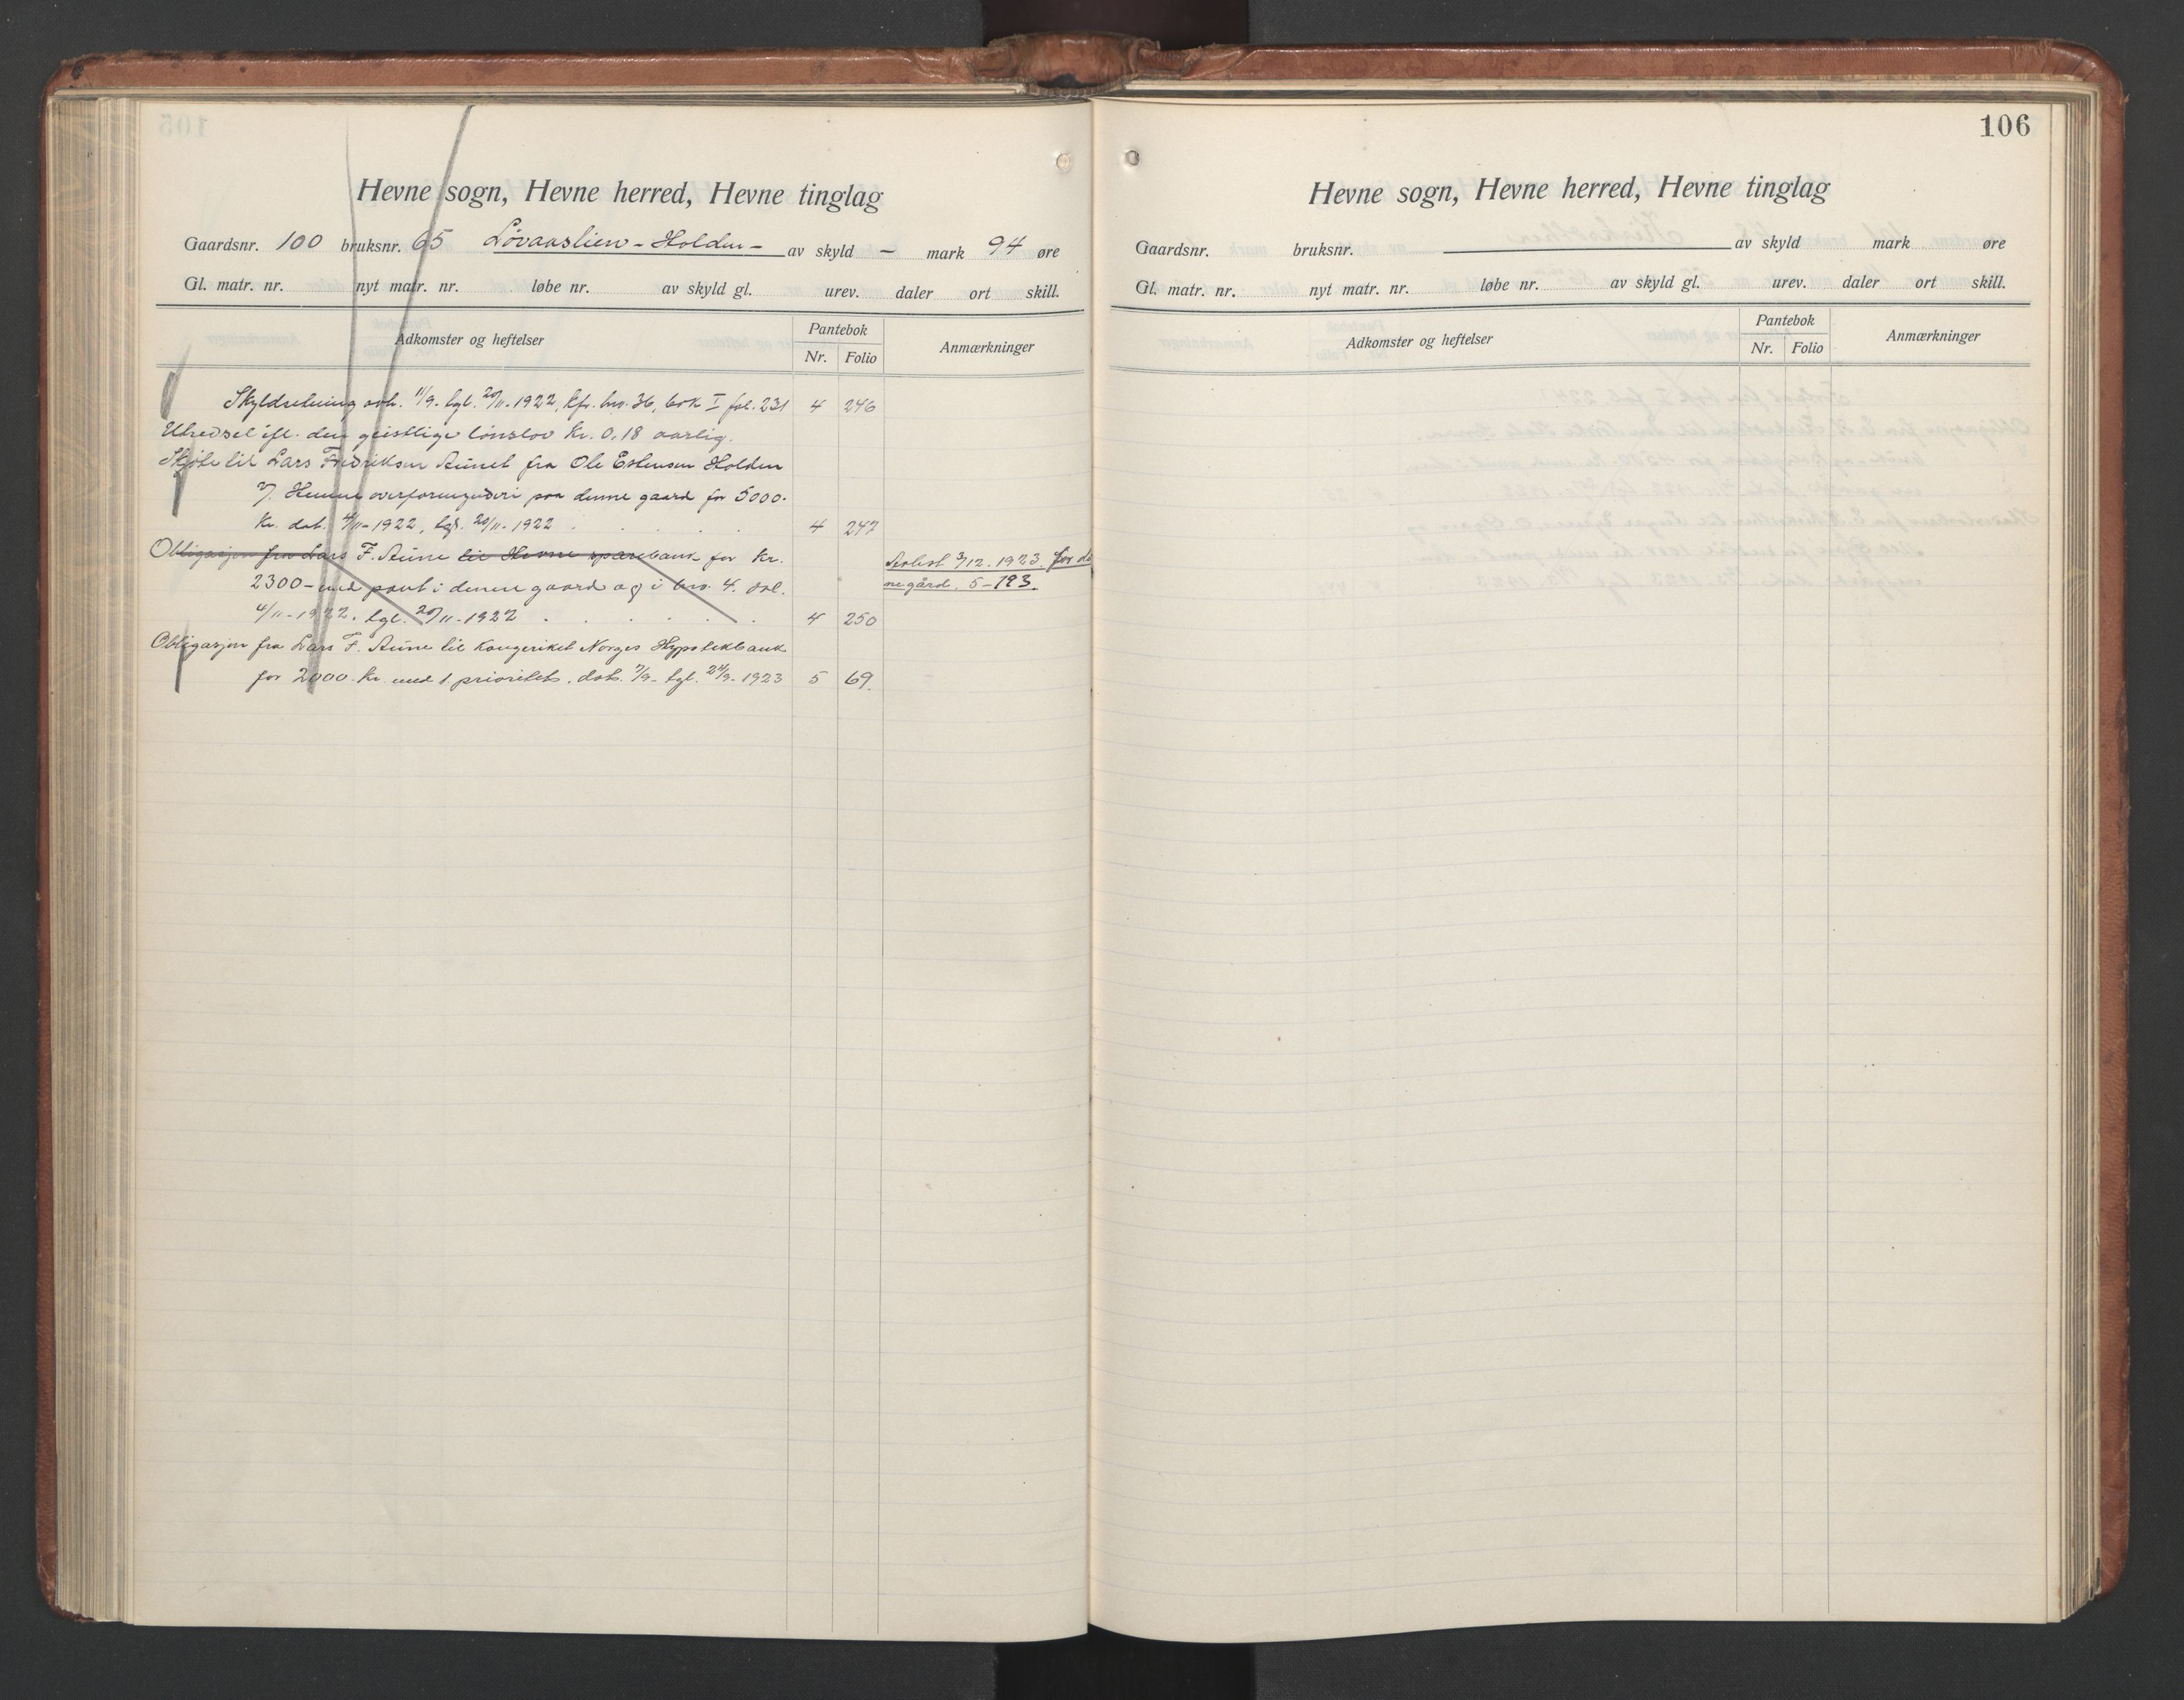 Hevne sogn, Hevne herred, Hevne tinglag
Gaardsnr. 100 bruksnr. 65 Løvaaslien - Holden - av skyld - mark 94 øre
Gl. matr. nr. nyt matr. nr. løbe nr. av skyld gl. urev. daler ort skill.
Adkomster og heftelser Pantebok Nr. Folio Anmærkninger
Skyldseining avh. 11/9. tgl. 20/11-1922, kfr. brv. 36, bok I fol. 231 4 246
Utredsel ifl. den geistlige lønslov Kr. 0.18 aarlig.
Skjøte til Lars Fredriksen Aunet fra Ole Estensen Holden
Hemne overformynderi paa denne gaard for 5000.
Kr. dat. 4/11-1922, tgl. 20/11-1922 4 247
Obligasjon fra Lars F. Aune til Hevne sparebank for Kr.
2300- med pant i denne gaard og i brv. 4. dat.
4/11-1922. tgl. 20/11-1922 4 250
3/12. 1923. for de
ne gård. 5-193.
Obligasjon fra Lars F. Aune til Kongeriket Norges Hypotekbank
for 2000. Kr. med 1 prioritet. dat. 7/9- tgl. 24/9-1923 5 69.
106
Hevne sogn, Hevne herred, Hevne tinglag
Gaardsnr. bruksnr. av skyld mark øre
Gl. matr. nr. nyt matr. nr. løbe nr. av skyld gl. urev. daler ort skill.
Adkomster og heftelser Pantebok Nr. Folio Anmærkninger